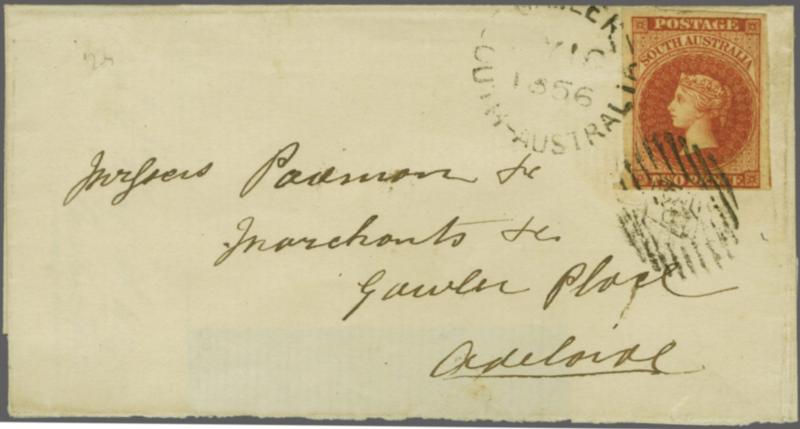 GAWLER
1856
SOUTH-AUSTRALIA
POSTAGE
SOUTH AUSTRALIA
TWO PENCE
Messers Paxman &c
Merchants &c
Gawler Place
Adelaide